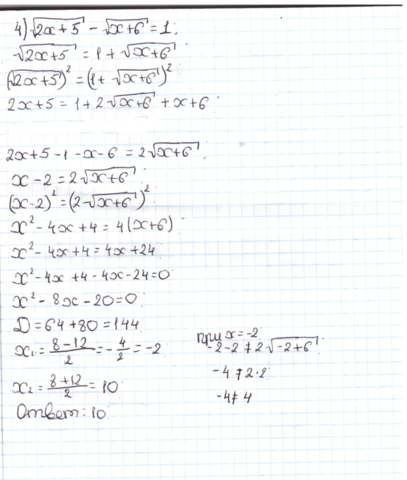 4) √(2x+5) - √(x+6) = 1;
√(2x+5) = 1 + √(x+6)
(√(2x+5))² = (1 + √(x+6))²
2x+5 = 1 + 2√(x+6) + x + 6
2x+5-1-x-6 = 2√(x+6);
x-2 = 2√(x+6)
(x-2)² = (2√(x+6))²
x² - 4x + 4 = 4(x+6)
x² - 4x + 4 = 4x + 24
x² - 4x + 4 - 4x - 24 = 0
x² - 8x - 20 = 0;
D = 64 + 80 = 144
x₁ = (8-12)/2 = -4/2 = -2
x₂ = (8+12)/2 = 10
Ответ: 10
при x = -2
-2-2 ≠ 2√(-2+6)
-4 ≠ 2·2
-4 ≠ 4